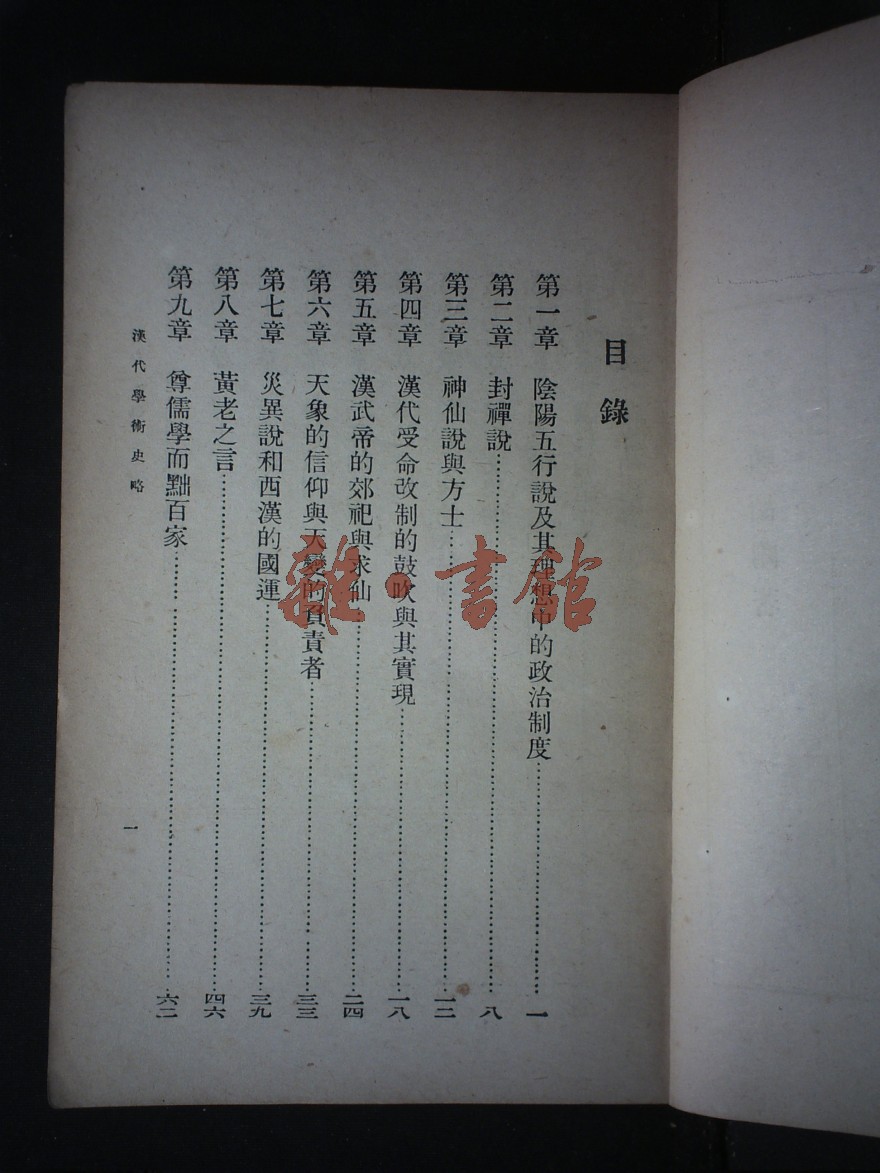 目錄
第一章 陰陽五行說及其理想中的政治制度………一
第二章 封禪說………八
第三章 神仙說與方士………一二
第四章 漢代受命改制的鼓吹與其實現………一八
第五章 漢武帝的郊祀與求仙………二四
第六章 天象的信仰與天變的負責者………三三
第七章 災異說和西漢的國運………三九
第八章 黃老之言………四六
第九章 尊儒學而黜百家………六二
漢代學術史略
一
雜·書館